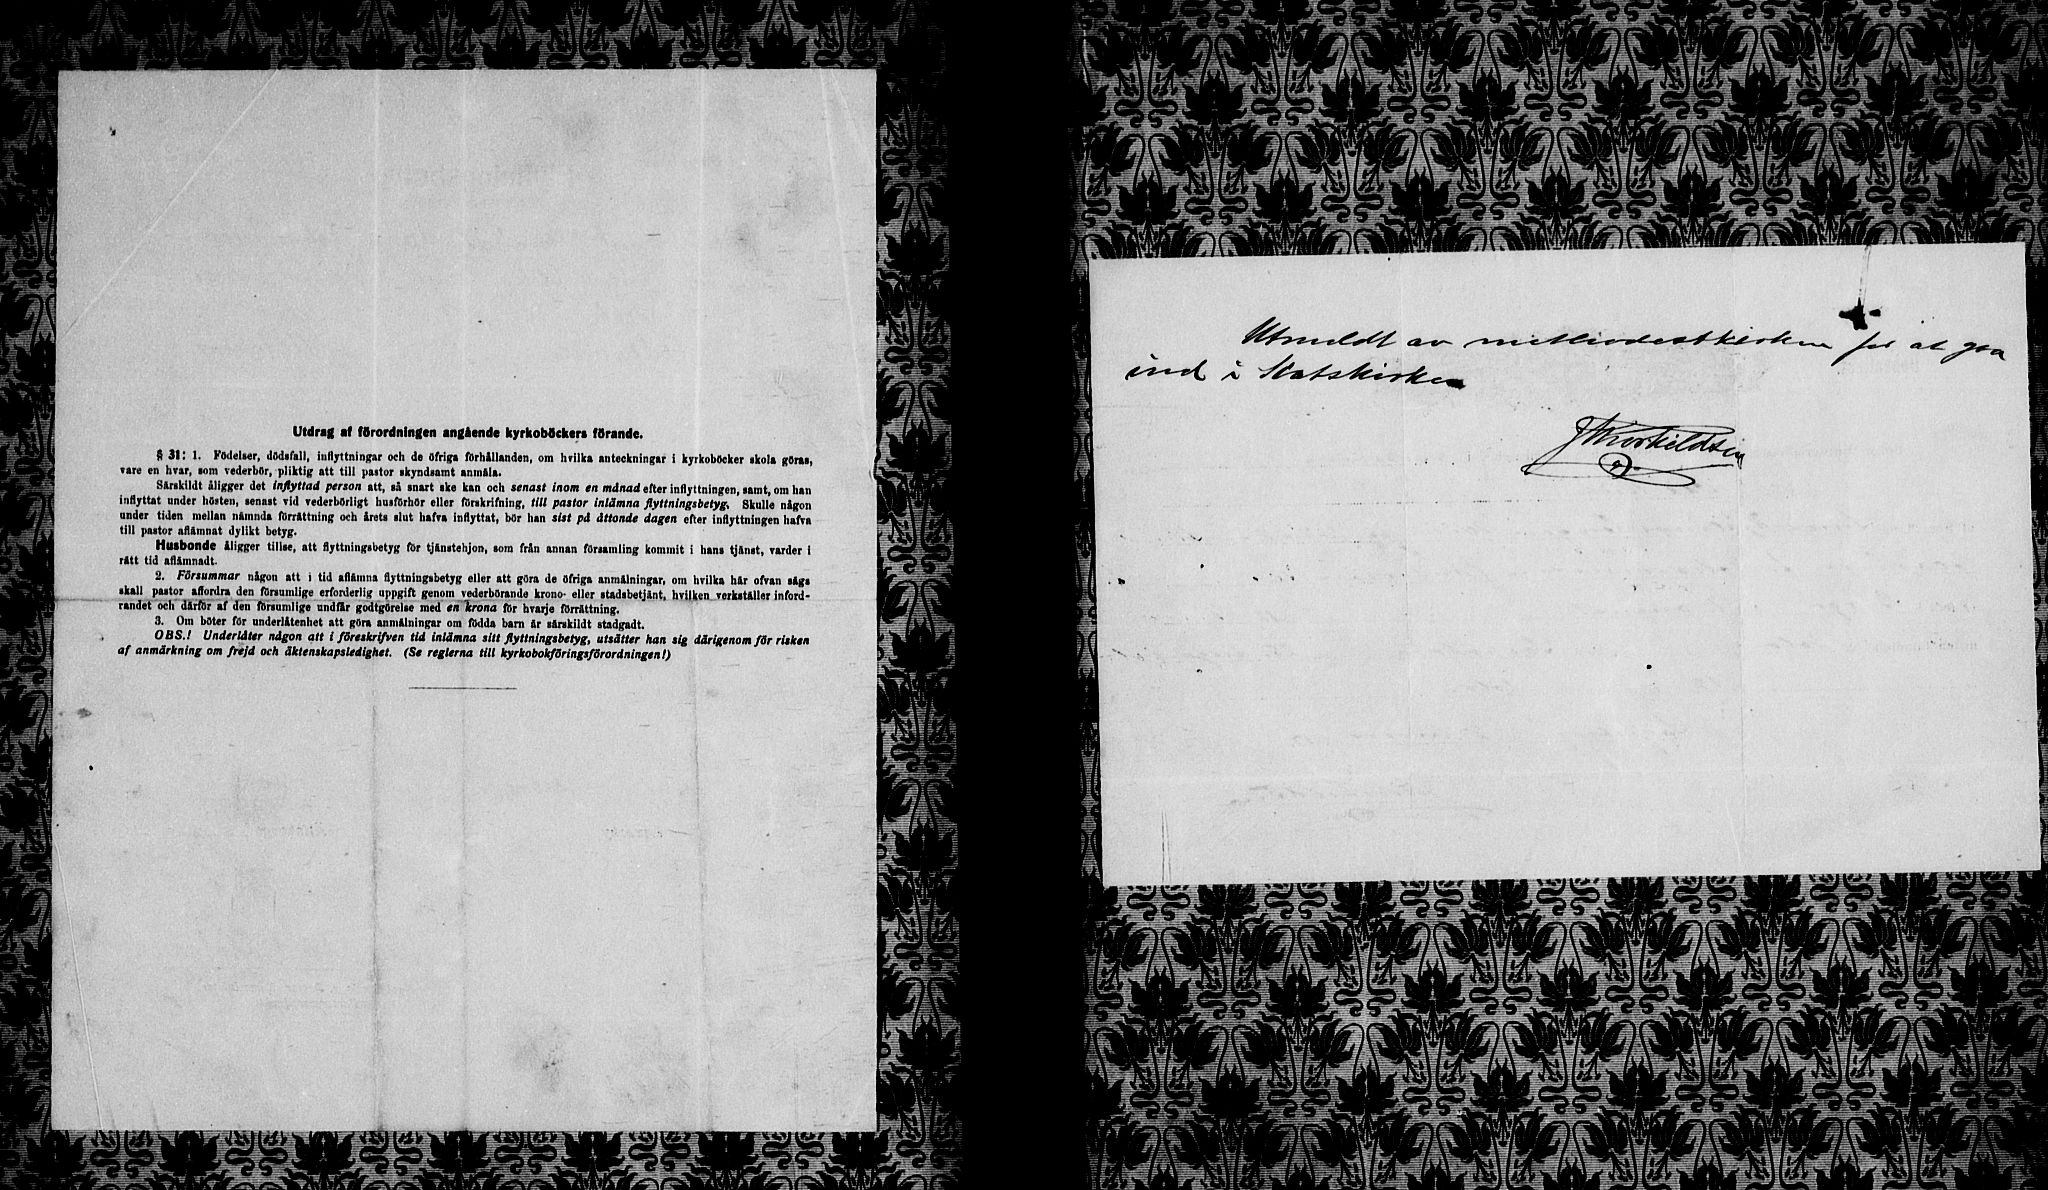 Utdrag af förordningen angående kyrkoböckers förande.
§ 31: 1. Födelser, dödsfall, inflyttningar och de öfriga förhållanden, om hvilka anteckningar i kyrkoböcker skola göras,
vare en hvar, som vederbör, pliktig att till pastor skyndsamt anmäla.
Särskildt åligger det inflyttad person att, så snart ske kan och senast inom en månad efter inflyttningen, samt, om han
inflyttat under hösten, senast vid vederbörligt husförhör eller förskrifning, till pastor inlämna flyttningsbetyg. Skulle någon
under tiden mellan nämnda förrättning och årets slut hafva inflyttat, bör han sist på åttonde dagen efter inflyttningen hafva
till pastor aflämnat dylikt betyg.
Husbonde åligger tillse, att flyttningsbetyg för tjänstehjon, som från annan församling kommit i hans tjänst, varder i
rätt tid aflämnadt.
2. Försummar någon att i tid aflämna flyttningsbetyg eller att göra de öfriga anmälningar, om hvilka här ofvan sägs
skall pastor affordra den försumlige erforderlig uppgift genom vederbörande krono- eller stadsbetjänt, hvilken verkställer inford-
randet och därför af den försumlige undfår godtgörelse med en krona för hvarje förrättning.
3. Om böter för underlåtenhet att göra anmälningar om födda barn är särskildt stadgadt.
OBS.! Underlåter någon att i föreskrifven tid inlämna sitt flyttningsbetyg, utsätter han sig därigenom för risken
af anmärkning om frejd och äktenskapsledighet. (Se reglerna till kyrkobokföringsförordningen!)
Utmeldt av methodestkirken for at gaa
ind i Statskirken
J Thorkildsen